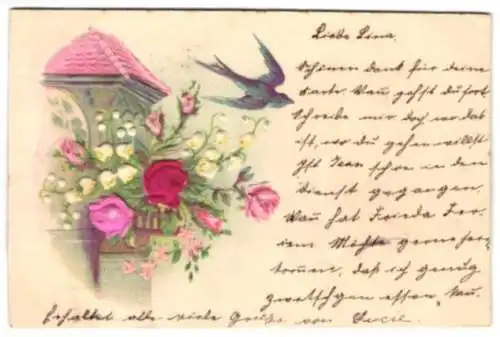 Liebe Lina.
Schönen Dank für deine
Karte. Wan gehst du fort
schreibe mir doch wo das
ist, wo du gehen willst
Ist Jean schon in den
Dienst gegangen.
Wan hat Frieda Fer-
ien Möchte gerne her-
kommen, daß ich genug
zwetschgen essen kan.
Erhaltet alle viele Grüße von Lucie.